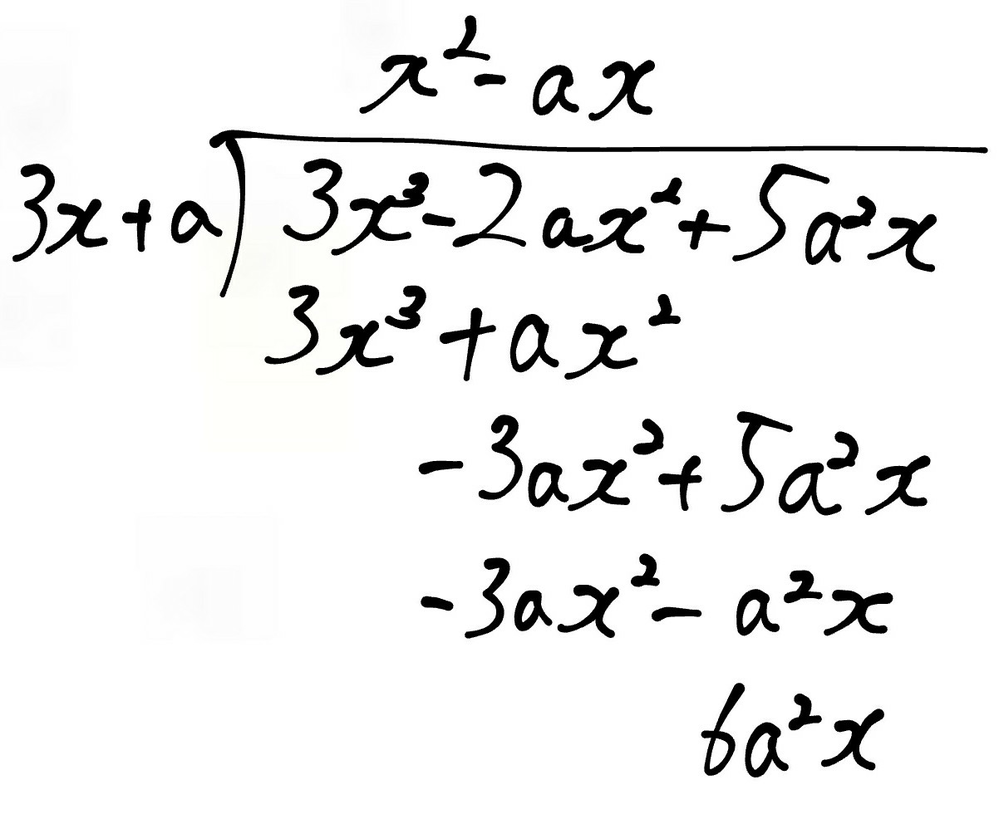 x² - ax
3x + a) 3x³ - 2ax² + 5a²x
3x³ + ax²
-3ax² + 5a²x
-3ax² - a²x
6a²x